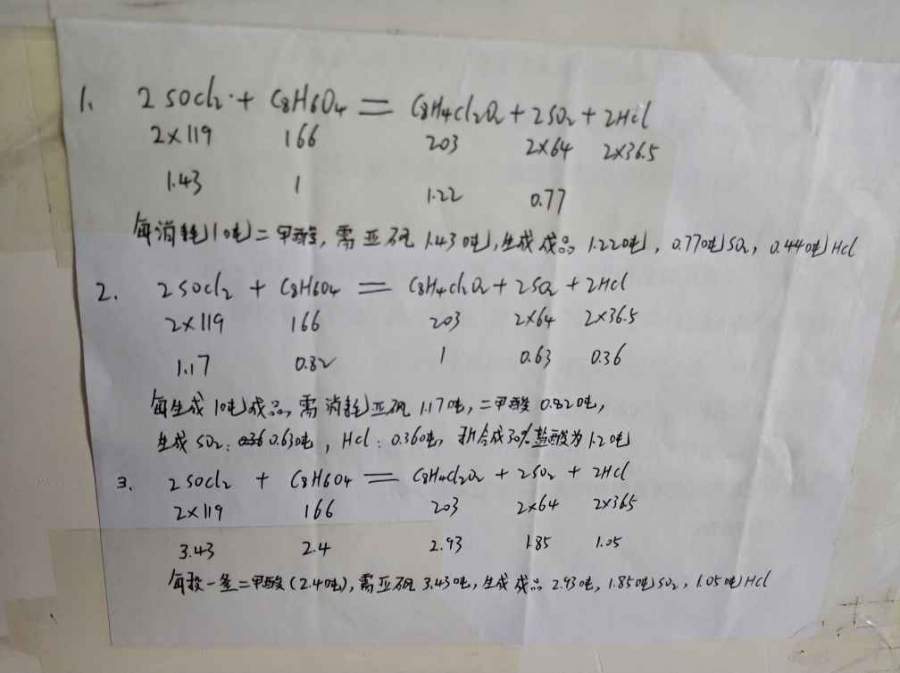 1. 2SOCl₂ + C8H6O4 = C8H4Cl2O2 + 2SO2 + 2HCl
2×119 166 203 2×64 2×36.5
1.43 1 1.22 0.77
每消耗1吨二甲酸, 需亚砜 1.43吨, 生成成品 1.22吨, 0.77吨SO₂, 0.44吨HCl
2. 2SOCl₂ + C8H6O4 = C8H4Cl2O2 + 2SO2 + 2HCl
2×119 166 203 2×64 2×36.5
1.17 0.82 1 0.63 0.36
每生成1吨成品, 需消耗亚砜 1.17吨, 二甲酸 0.82吨,
生成SO₂: 0.63吨, HCl: 0.36吨, 折合成30%盐酸为1.2吨
3. 2SOCl₂ + C8H6O4 = C8H4Cl2O2 + 2SO2 + 2HCl
2×119 166 203 2×64 2×36.5
3.43 2.4 2.93 1.85 1.05
每投一釜二甲酸(2.4吨), 需亚砜 3.43吨, 生成成品 2.93吨, 1.85吨SO₂, 1.05吨HCl